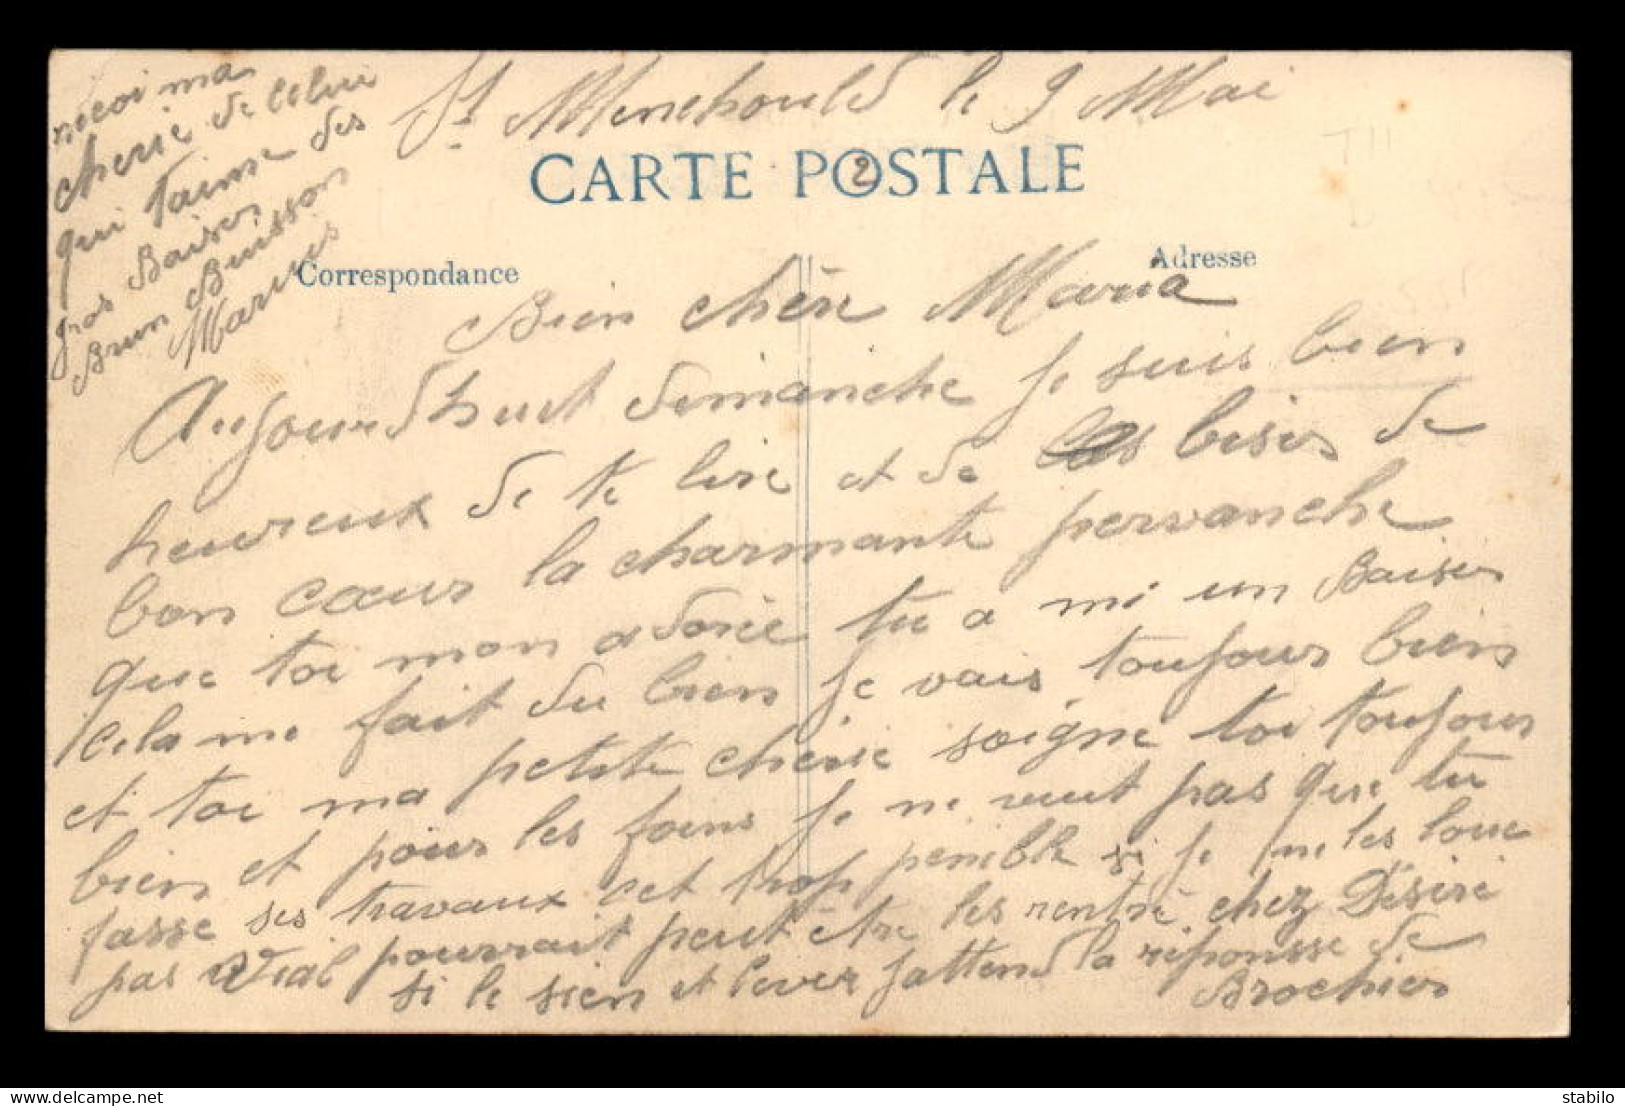 St Menehould le 9 Mai
CARTE POSTALE
2
Correspondance
Adresse
Bien chère Maria
Aujourdhuit dimanche je suis bien
heureux de te lire et de las bises de
bon cœur la charmante pervanche
que toi mon adorée tu a mi un Baiser
cela me fait du bien je vais toujours bien
et toi ma petite chérie soigne toi toujours
bien et pour les foins je ne veut pas que tu
fasse ses travaux cet trop penible si je ne les loue
pas Vial pourrait peut être les rentré chez Désiré
si le sien et lever jattend la reponsse de
Brochier
recoi ma
cherie de celui
qui taime des
gros Baisers
Brun Buisson
Marius
delcampe.net
stabilo